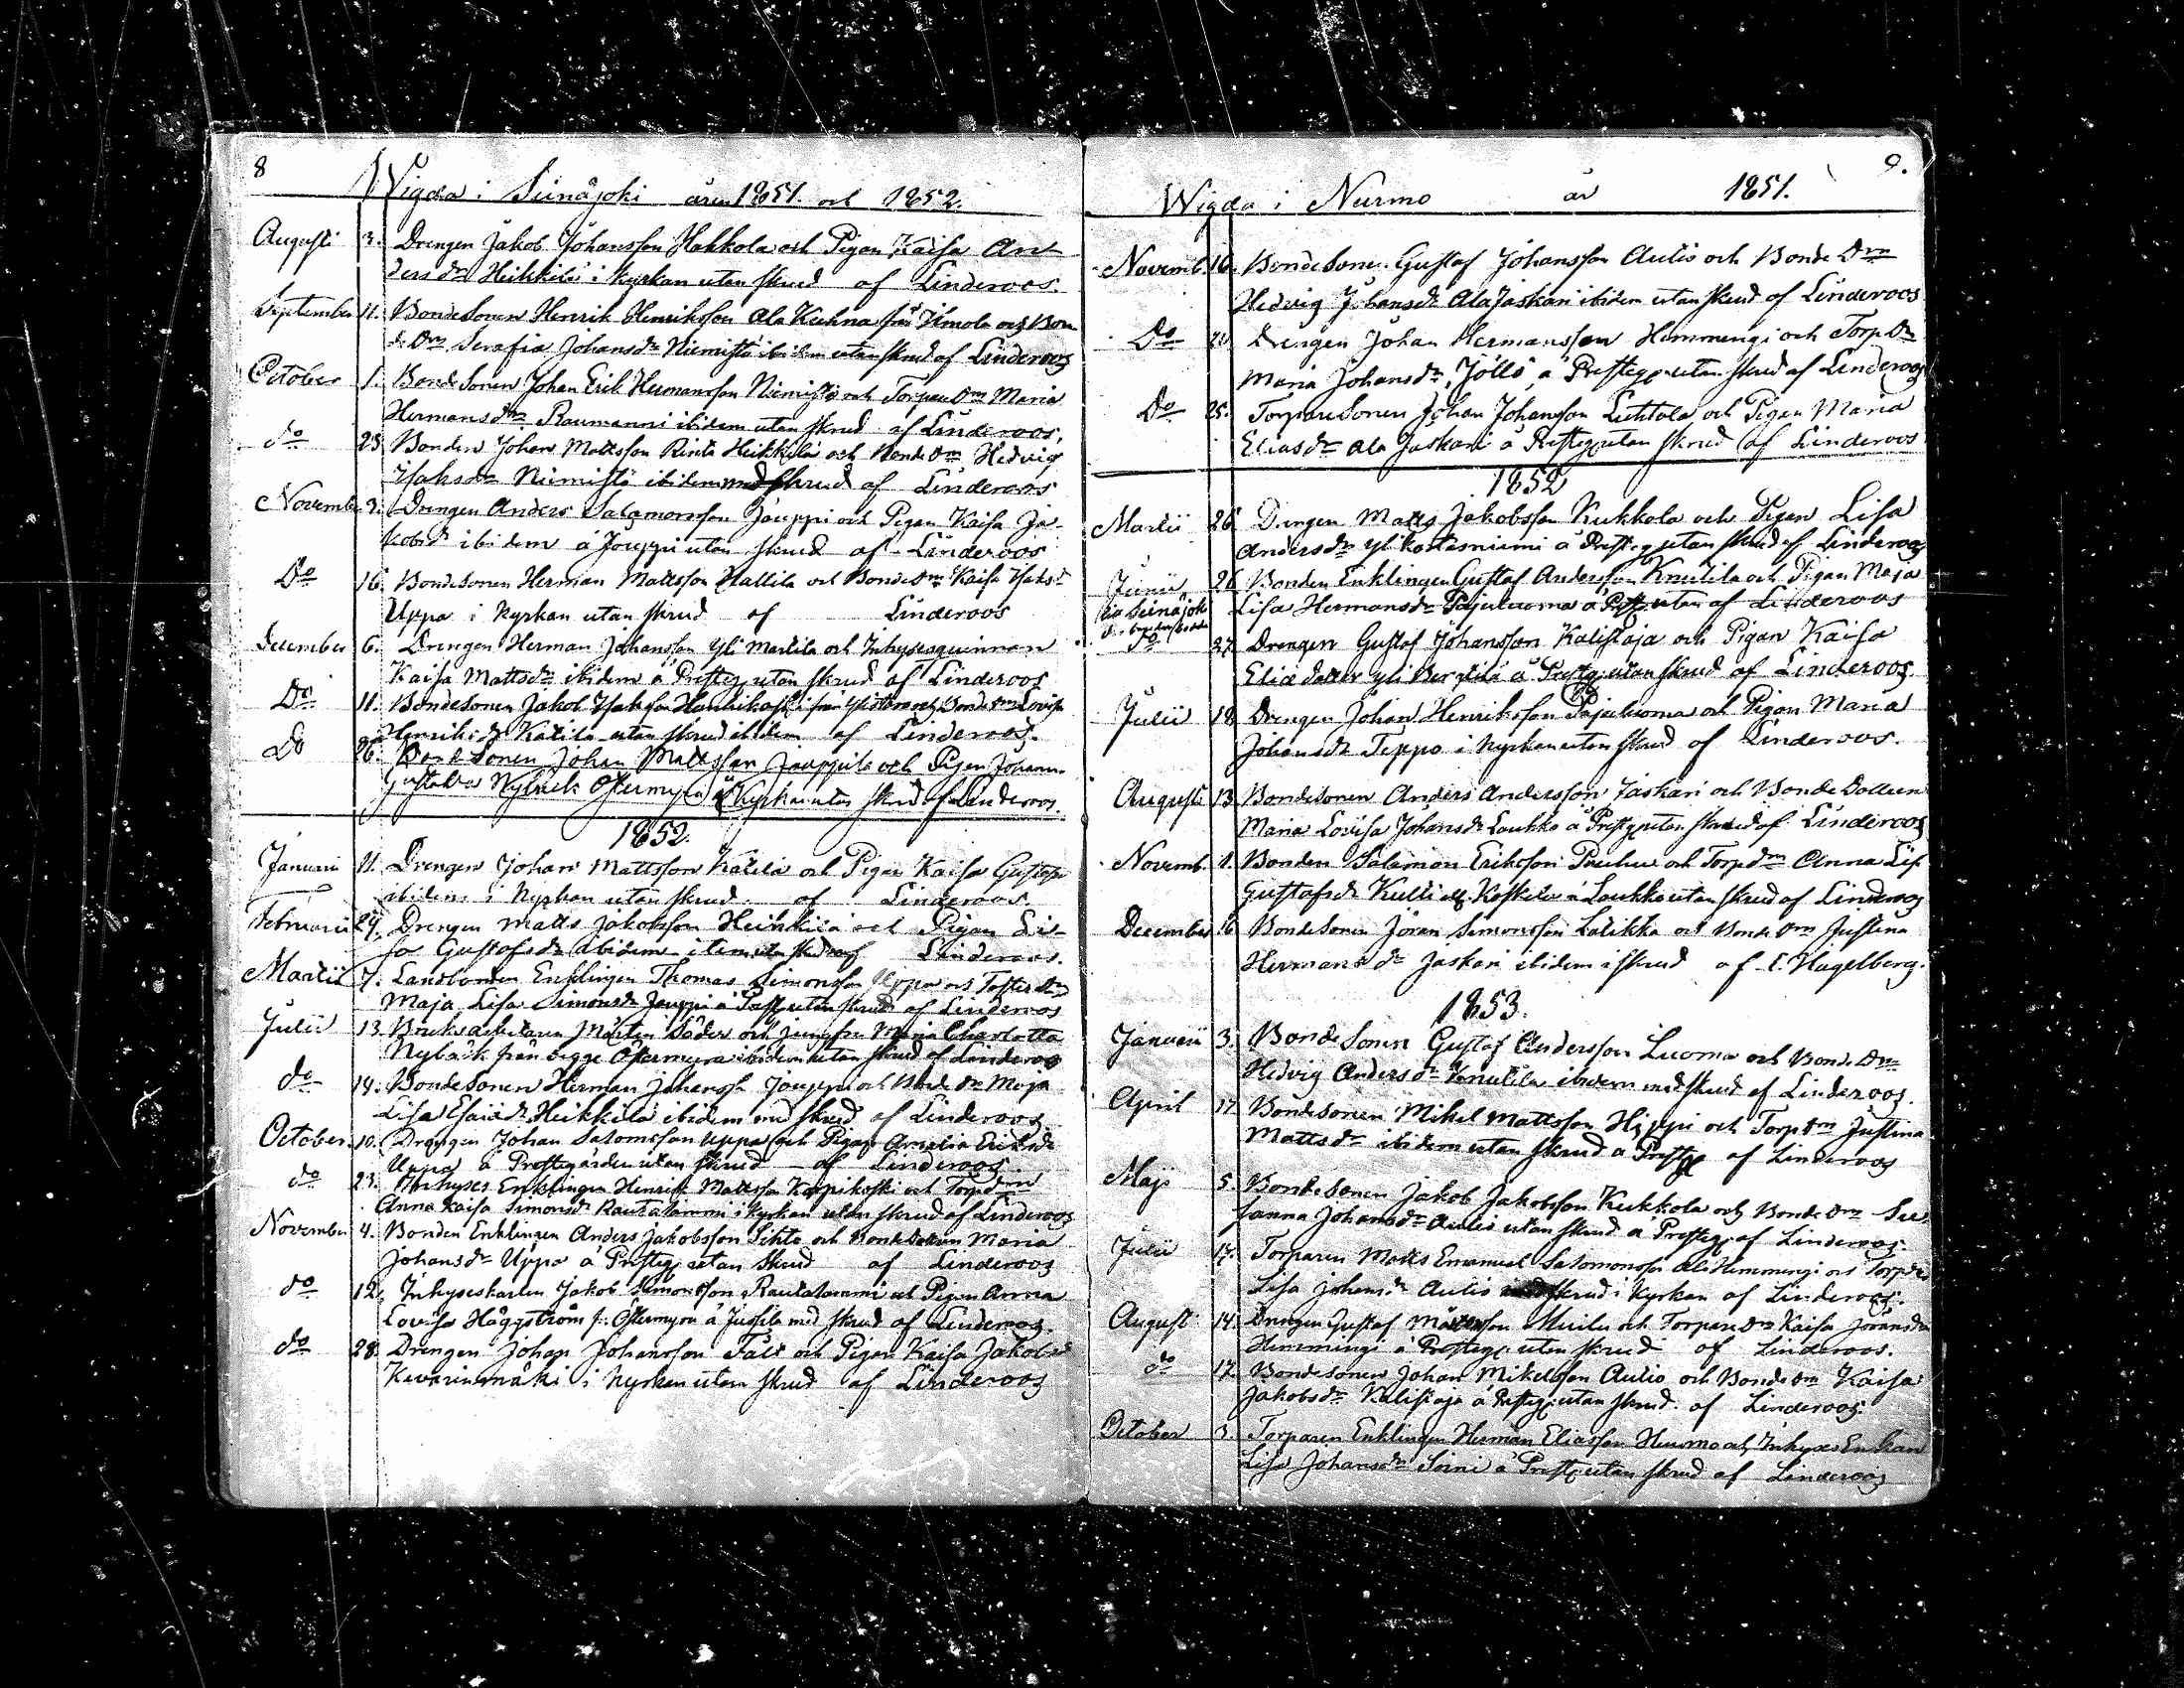 8
Wigda i Seinäjoki åren 1851. och 1852.
Augusti 3. Drengen Jakob Johansson Hakkola och Pigan Kaisa An-
ders dr Heikkilä i kyrkan utan skrud af Linderoos.
September 11. Bondesonen Henrik Henriksson Ala Kuhna från Ilmola och Bon
de Drn Serafia Johansdr Niemistö ibidem utan skrud af Linderoos
October 1. Bondesonen Johan Erik Hermansson Niemistö och Torpare Drn Maria
Hermansdr Raumanni ibidem utan skrud af Linderoos.
do 25 Bonden Johan Mattsson Rinta Heikkilä och Bonde Drn Hedvig
Isaksdr Niemistö ibidem med skrud af Linderoos
November 3. Drengen Anders Salomonsson Jouppi och Pigan Kaisa Ja-
kobsd ibidem å Jouppi utan skrud af Linderoos
Do 16. Bondesonen Herman Mattsson Hallila och Bonde Drn Kaisa Isaksd
Uppa i kyrkan utan skrud af Linderoos
December 6. Drengen Herman Johansson Yli Marttila och Inhysesquinnan
Kaisa Mattsdr ibidem å Presteg. utan skrud af Linderoos
Do 11. Bondesonen Jakob Isaksson från och Bonde Drn Lovisa
Henriksdr Katila utan skrud ibidem af Linderoos.
Do 26. Bondesonen Johan Mattsson Jouppila och Pigan Johanna
Gustafva Nybäck Östermyra i Kyrkan utan skrud af Linderoos.
1852.
Januari 11. Drengen Johan Mattsson Katila och Pigan Kaisa Gustafs
ibidem i kyrkan utan skrud af Linderoos.
Februarii 29. Drengen Matts Jakobsson Heikkilä och Pigan Li-
sa Gustafsdr ibidem utan skrud af Linderoos.
Martii 7. Landbonden Enklingen Thomas Simonsson Uppa och
Maja Lisa Simonsdr Jouppi å utan skrud af Linderoos
Julii 13. Bruksarbetaren Mårten Söder och Jungfru Maria Charlotta
Nybäck från begge Östermyra ibidem utan skrud af Linderoos
do 14. Bondesonen Herman Johanss Jouppi och Bonde Drn Maja
Lisa Esaiædr Heikkilä ibidem med skrud af Linderoos.
October 10. Drengen Johan Salomosson Uppa och Pigan Amalia Eriksdr
Uppa å Prestegården utan skrud af Linderoos.
do 23. Inhyses Enklingen Henrik Mattsson Korpikoski och Torpdrn
Anna Kaisa Simonsdr Rautalammi i Kyrkan utan skrud af Linderoos
November 4. Bonden Enklingen Anders Jakobsson Sihto och Bondedottren Maria
Johansdr Uppa å Presteg. utan skrud af Linderoos
do 12. Inhyseskarlen Jakob Simonsson Rautalammi och Pigan Anna
Lovisa Häggström fr. Östermyra å Jussila med skrud af Linderoos.
do 28. Drengen Johan Johansson Fält och Pigan Kaisa Jakobsd
Kevarinmäki i kyrkan utan skrud af Linderoos
9.
Wigda i Nurmo år 1851.
Novemb. 16. Bondesonen Gustaf Johansson Aulio och Bonde Drn
Hedvig Johansdr Ala Jaskari ibidem utan skrud af Linderoos
Do Drengen Johan Hermansson Hemmingi och Torp Dn
Maria Johansdr Jöllö å Presteg. utan skrud af Linderoos
Do 25. Torparesonen Johan Johansson Luhtala och Pigan Maria
Eliasdr Ala Jaskari å Presteg. utan skrud af Linderoos
1852
Martii 26 Drengen Matts Jakobsson Kukkola och Pigan Lisa
Andersdr Yli Kostesniemi å Presteg utan skrud af Linderoos
Junii 26 Bonden Enklingen Gustaf Andersson Knuutila och Pigan Maja
Lisa Hermansdr Pajuluoma å Prestg. utan af Linderoos
do 27. Drengen Gustaf Johansson Kalistaja och Pigan Kaisa
Eliæ dotter Yli Bergtilä å Presteg. utan skrud af Linderoos.
Julii 18 Drengen Johan Henriksson Pajuluoma och Pigan Maria
Johansdr Teppo i kyrkan utan skrud af Linderoos.
Augusti 13. Bondesonen Anders Andersson Jaskari och Bonde Dottren
Maria Lovisa Johansdr Loukko å Presteg utan skrud af Linderoos
Novemb. 1. Bonden Salomon Eriksson och Torpdrn Anna Lis
Gustafsdr Koskela å Loukko utan skrud af Linderoos
December 16 Bondesonen Jöran Simonsson Latikka och Bonde Drn Justina
Hermansdr Jaskari ibidem i skrud af C. Hagelberg.
1853.
Januarii 3. Bondesonen Gustaf Andersson Luoma och Bonde Drn
Hedvig Andersdr Knuutila ibidem med skrud af Linderoos.
April 17. Bondesonen Mikel Mattsson Hippi och Torpdrn Justina
Mattsdr ibidem utan skrud å Presteg af Linderoos
Maji 5. Bondesonen Jakob Jakobsson Kukkola och Bonde Drn Su-
sanna Johansdr Aulio utan skrud å Presteg. af Linderoos.
Julii 17. Torparen Matts Emanuel Salomonsson Ala Hemmingi och Torpdr
Lisa Johansdr Aulio skrud i kyrkan af Linderoos.
Augusti 14. Drengen Gustaf Mattsson och Torpare Drn Kaisa Jöransdr
Hemmingi å Presteg. utan skrud af Linderoos.
do 17. Bondesonen Johan Mikelsson Aulio och Bonde Drn Kaisa
Jakobsdr Kalistaja å Presteg. utan skrud af Linderoos.
October 3. Torparen Enklingen Herman Eliasson och Inhyses Enkan
Lisa Johansdr Soini å Presteg. utan skrud af Linderoos